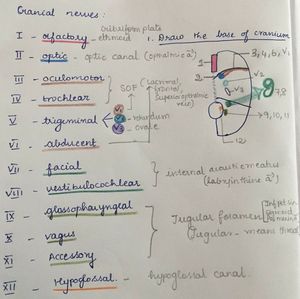 Cranial nerves:
cribriform plate
I - olfactory - ethmoid
1. Draw the base of cranium
II - optic - optic canal (opthalmic a)
1
2
3, 4, 6, V1
III - oculomotor
SOF
(Lacrimal, frontal, superior opthalmic vein)
V2
V3
IV - trochlear
7,8
V - trigeminal
V1
V2 - rotundum
V3 - ovale
9, 10, 11
VI - abducent
12
VII - facial
VIII - vestibulocochlear
internal acoustic meatus
(labyrinthine a)
IX - glossopharyngeal
Jugular foramen
X - vagus
Jugular - means throat
XI - Accessory
XII - Hypoglossal - hypoglossal canal.